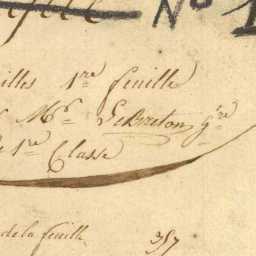 N° 1
illes 1re feuille
Mr LeBreton gre
1re Classe
de la feuille 357